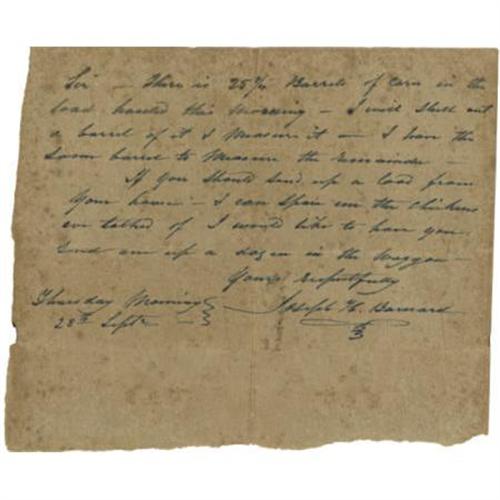 Sir — There is 25¾ Barrels of Corn in the
load hauled this Morning — I will Shell out
a barrel of it & Measure it — I have the
barrel to Measure the remainder —
If you Should Send up a load from
your house — I can the Chickens
we talked of I would like to have you
Send em up a dozen in the Waggon —
Yours respectfully
Thursday Morning } Joseph H. Barnard
28th Septr —